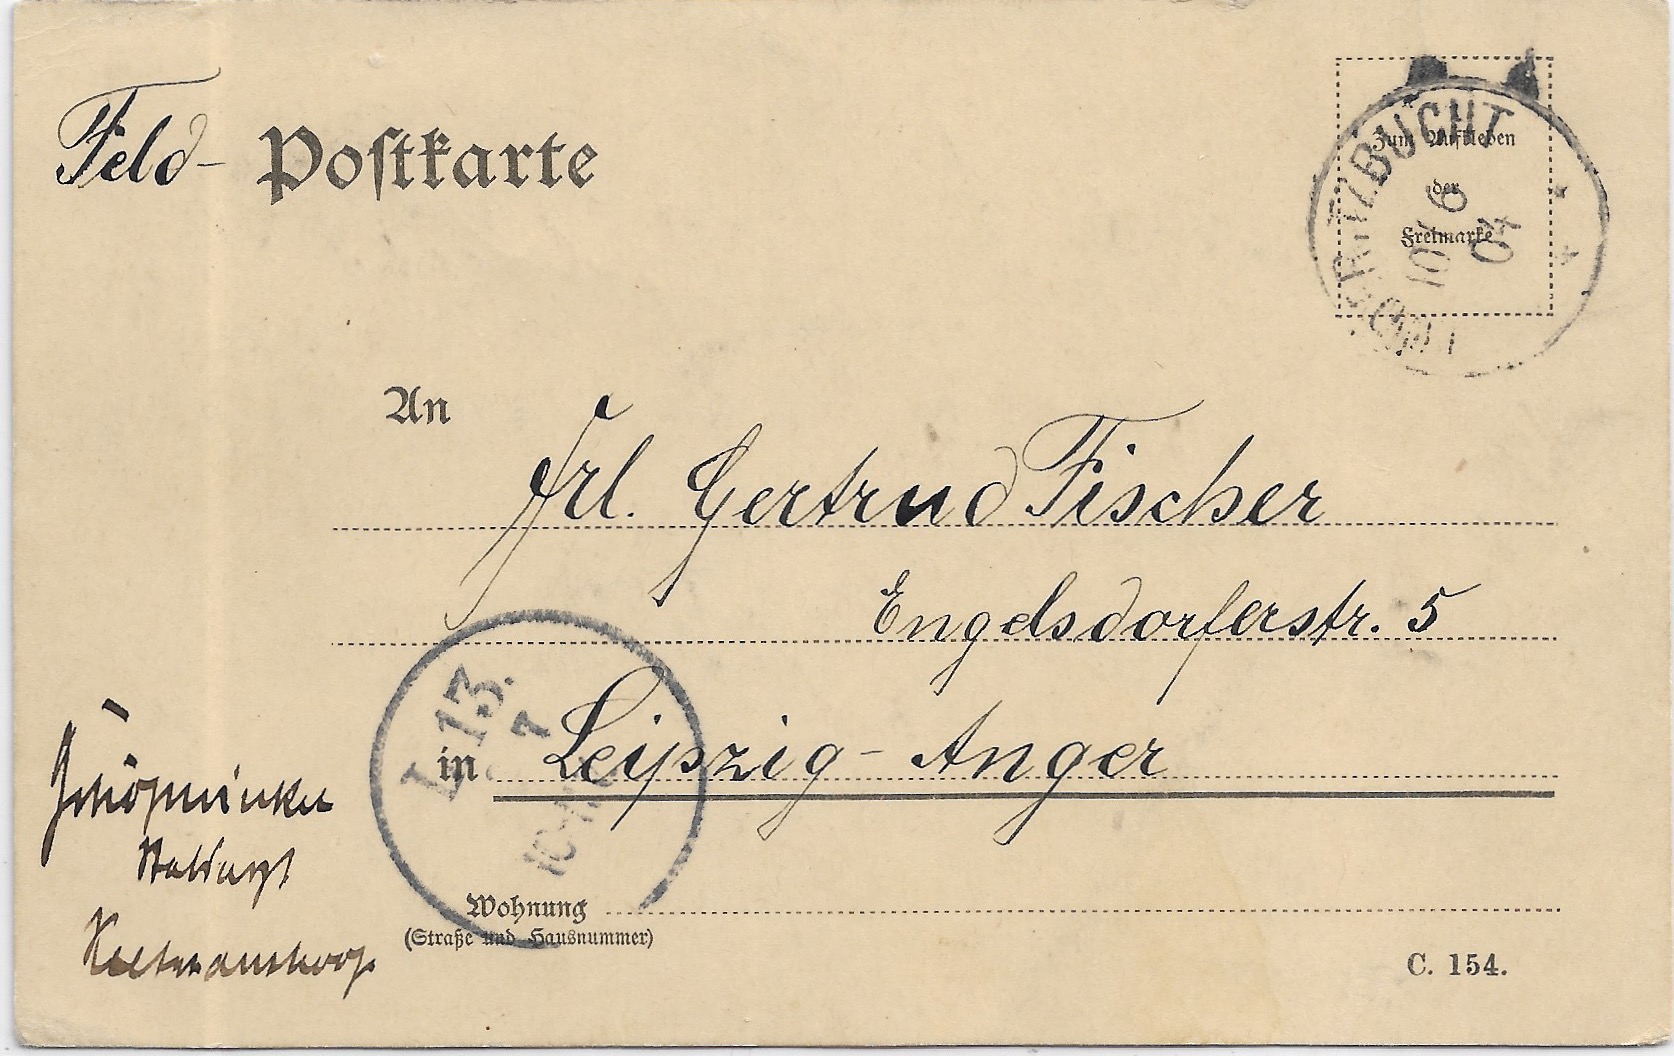 Feld-Postkarte
LÜDERITZBUCHT
10/6
04
Zum Aufkleben
der
Freimarke
An
Frl. Gertrud Fischer
Engelsdorferstr. 5
in Leipzig-Anger
L 13.
7
Stabsarzt
Keetmanshoop
Wohnung
(Straße und Hausnummer)
C. 154.